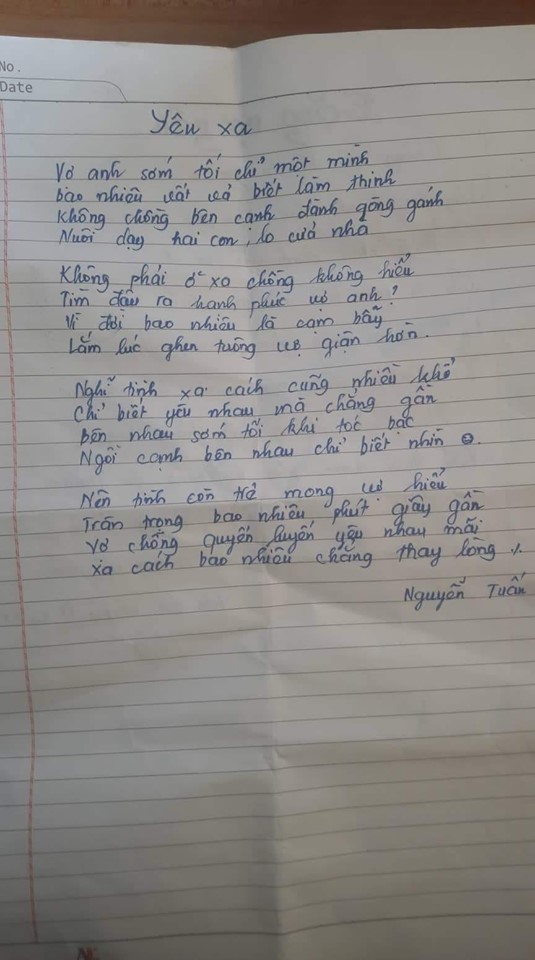 No.
Date
Yêu xa
Vợ anh sớm tối chỉ một mình
bao nhiêu vất vả biết làm thinh
Không chồng bên cạnh đành gồng gánh
Nuôi dạy hai con, lo cửa nhà
Không phải ở xa chồng không hiểu
Tìm đâu ra hạnh phúc vợ anh?
Vì đời bao nhiêu là cạm bẫy
Lắm lúc ghen tuông vợ giận hờn.
Nghĩ tình xa cách cũng nhiều khổ
Chỉ biết yêu nhau mà chẳng gần
Bên nhau sớm tối khi tóc bạc
Ngồi cạnh bên nhau chỉ biết nhìn ☺.
Nên tình còn trẻ mong vợ hiểu
Trân trọng bao nhiêu phút giây gần
Vợ chồng quyến luyến yêu nhau mãi
Xa cách bao nhiêu chẳng thay lòng ./.
Nguyễn Tuấn